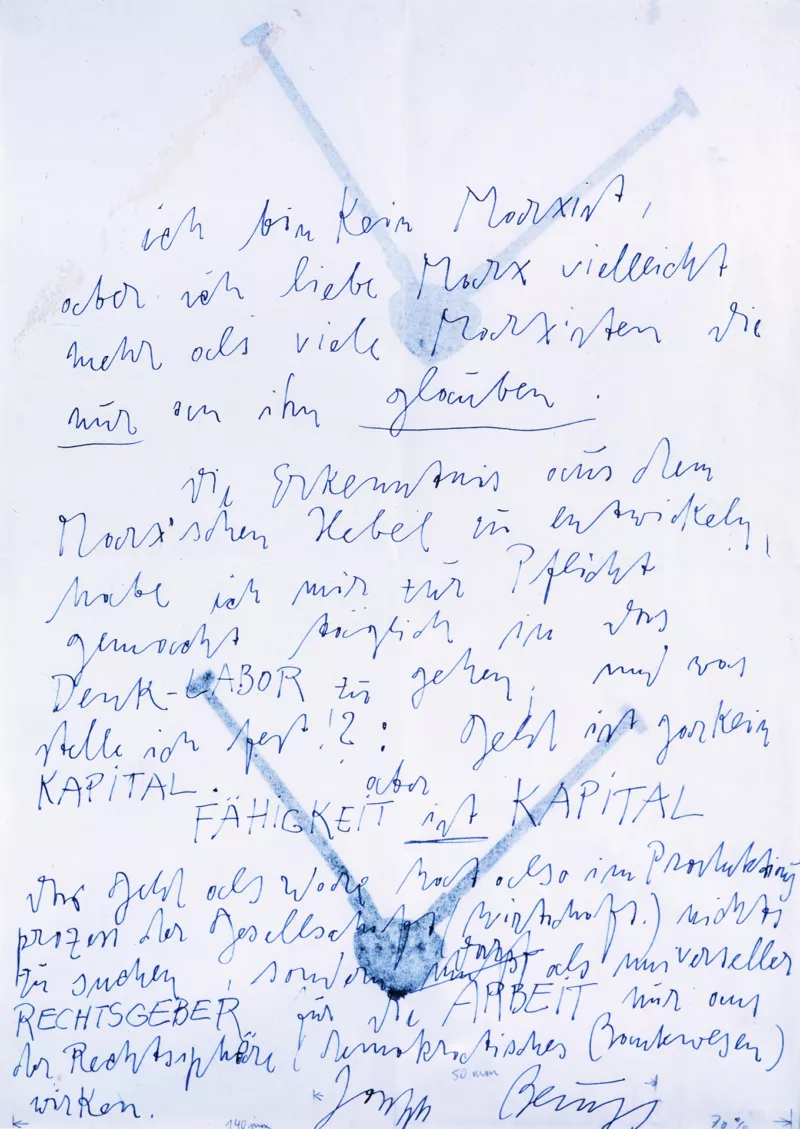 ich bin Kein Marxist,
aber ich liebe Marx vielleicht
mehr als viele Marxisten die
nur an ihn glauben.
die Erkenntnis aus dem
Marx'schen Hebel zu entwickeln,
habe ich mir zur Pflicht
gemacht täglich in das
Denk-LABOR zu gehen, und was
stelle ich fest!?: Geld ist garkein
KAPITAL. aber
FÄHIGKEIT ist KAPITAL
das Geld als Ware hat also im Produktions
prozess der Gesellschaft (Wirtschaft.) nichts
zu suchen, sondern darf als universeller
RECHTSGEBER für die ARBEIT nur aus
der Rechtssphäre (demokratisches Bankwesen)
wirken. Joseph Beuys
50 mm
140 mm 70 %